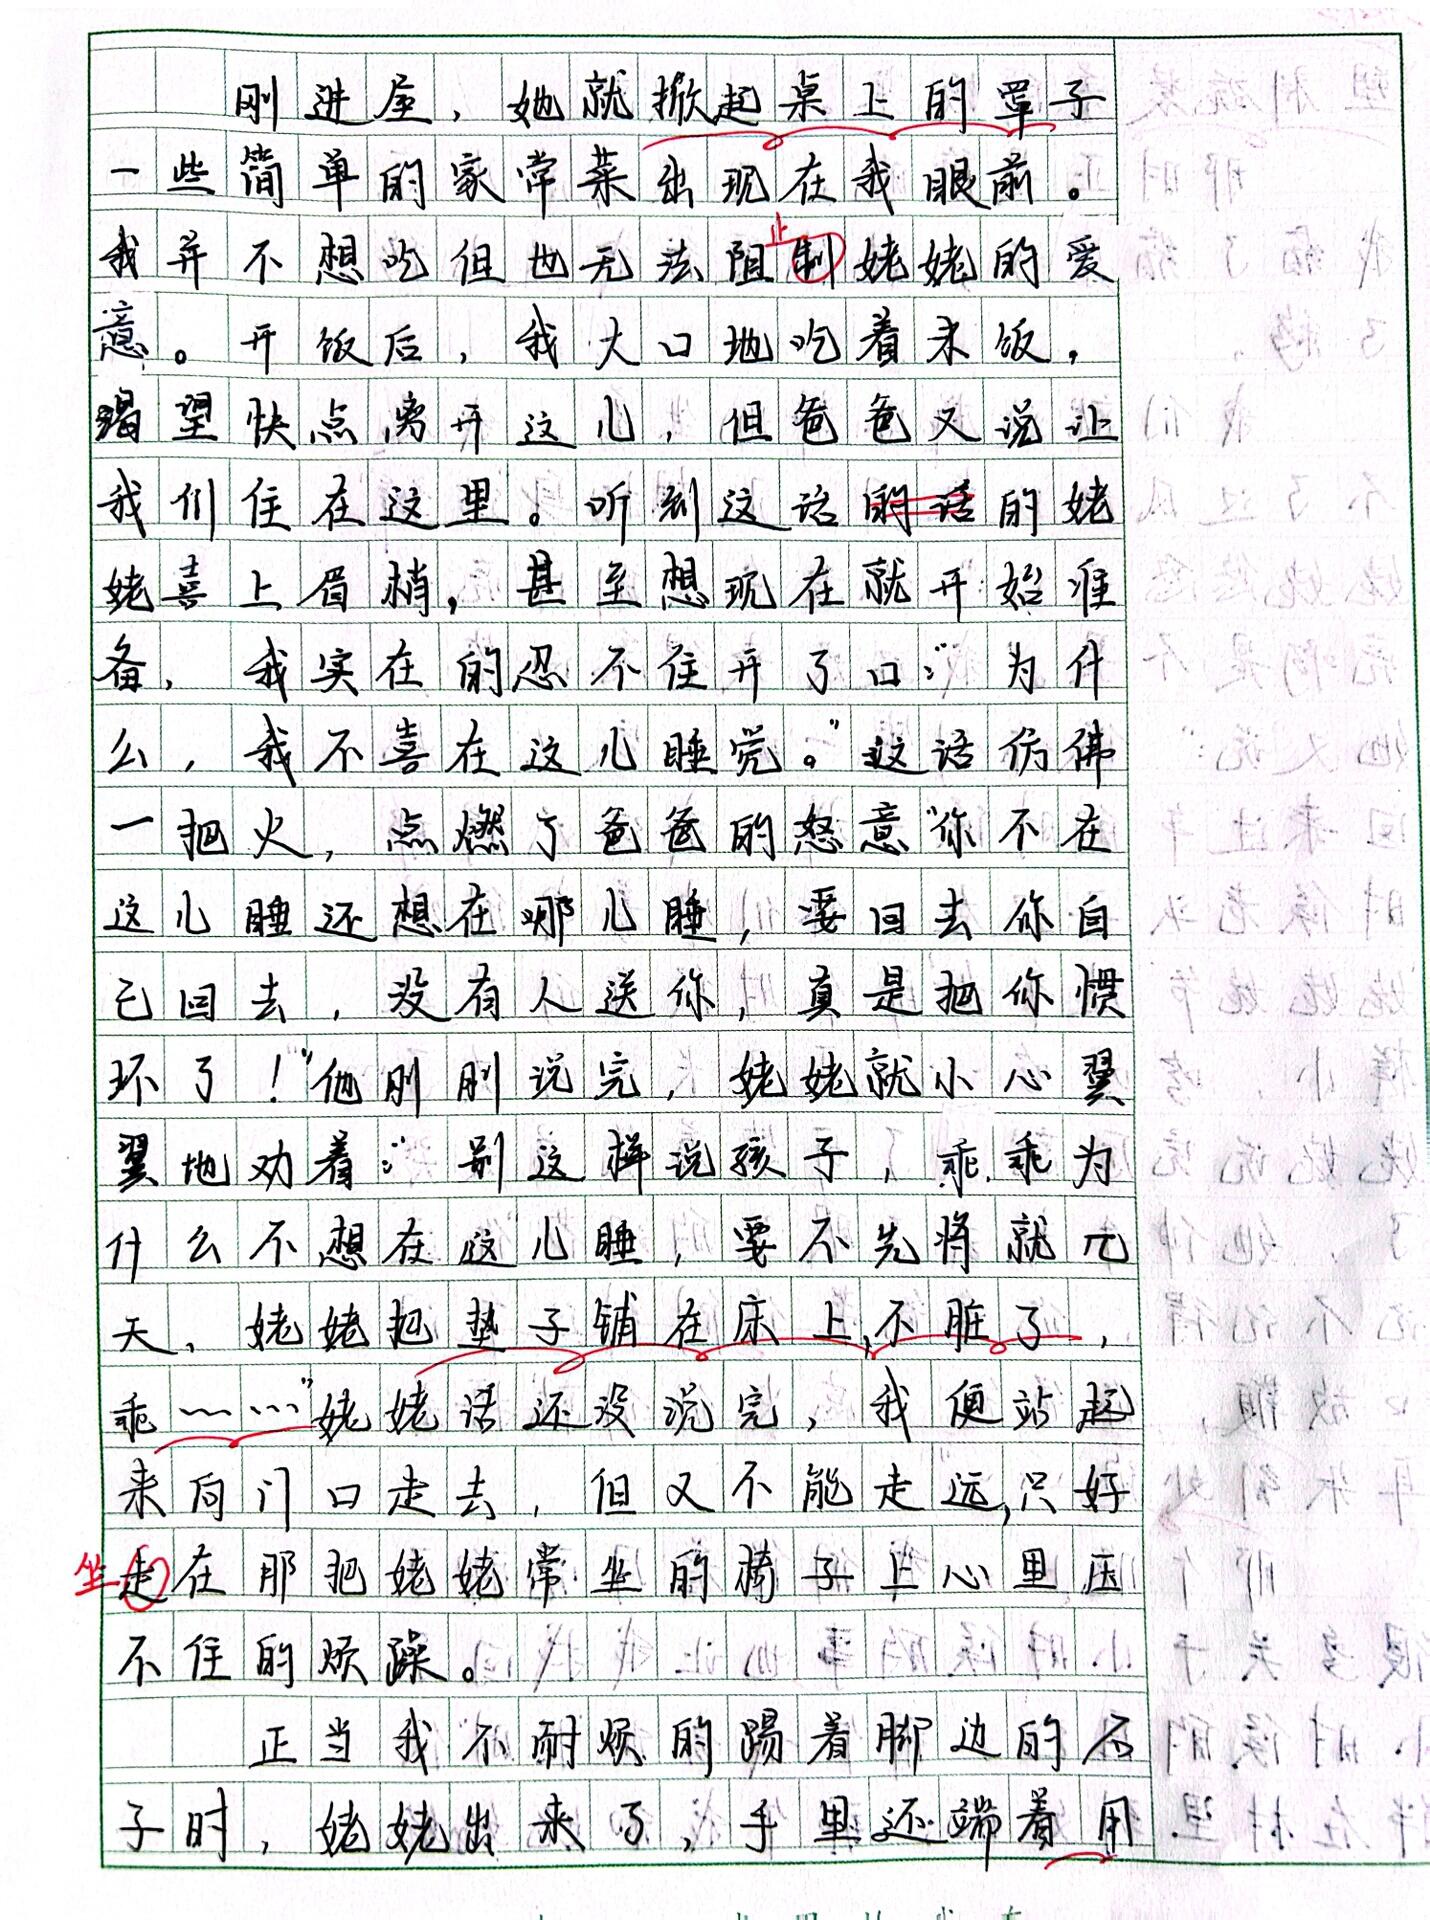 刚进屋，她就掀起桌上的罩子
一些简单的家常菜出现在我眼前。
我并不想吃但也无法阻制姥姥的爱
止
意。开饭后，我大口地吃着米饭，
渴望快点离开这儿，但爸爸又说让
我们住在这里。听到这话的话的姥
姥喜上眉梢，甚至想现在就开始准
备，我实在的忍不住开了口：“为什
么，我不喜在这儿睡觉。”这话仿佛
一把火，点燃了爸爸的怒意“你不在
这儿睡还想在哪儿睡，要回去你自
己回去，没有人送你，真是把你惯
坏了！”他刚刚说完，姥姥就小心翼
翼地劝着：“别这样说孩子，乖乖为
什么不想在这儿睡，要不先将就几
天，姥姥把垫子铺在床上，不脏了，
乖……”姥姥话还没说完，我便站起
来向门口走去，但又不能走远，只好
坐
走在那把姥姥常坐的椅子上心里压
不住的烦躁。
正当我不耐烦的踢着脚边的石
子时，姥姥出来了，手里还端着用